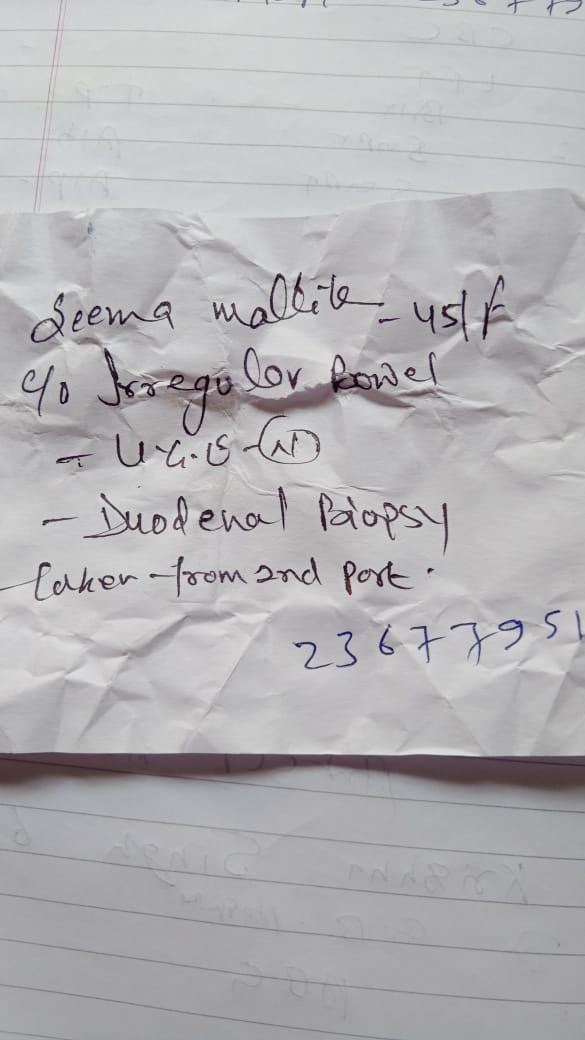 Seema - 45/F
c/o Irregular Bowel
- U.G.IS - (N)
- Duodenal Biopsy
taken from 2nd part.
23677951